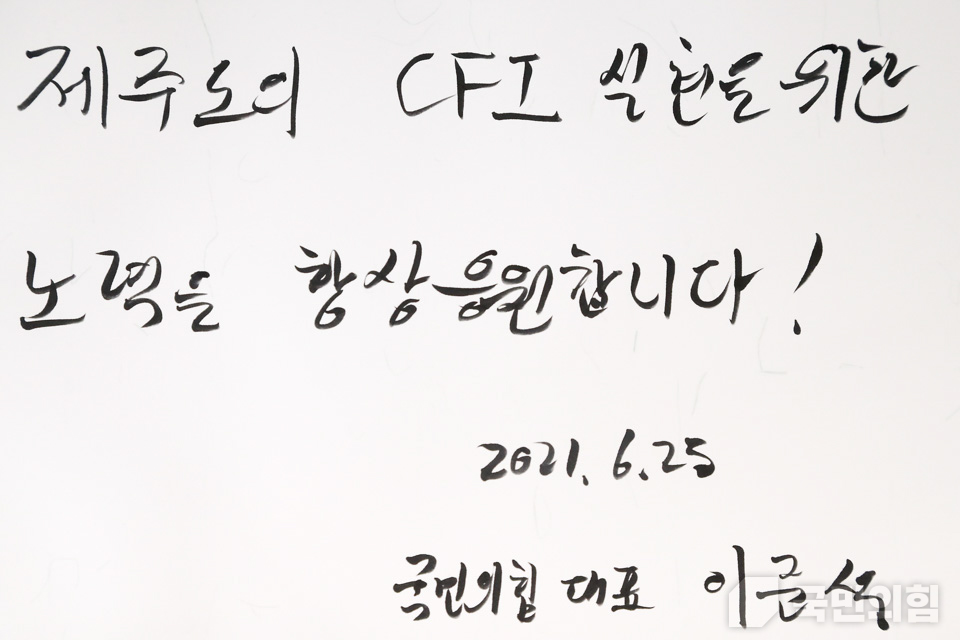 제주도의 CFI 실현을 위한
노력을 항상 응원합니다!
2021. 6. 25
국민의힘 대표 이준석
국민의힘